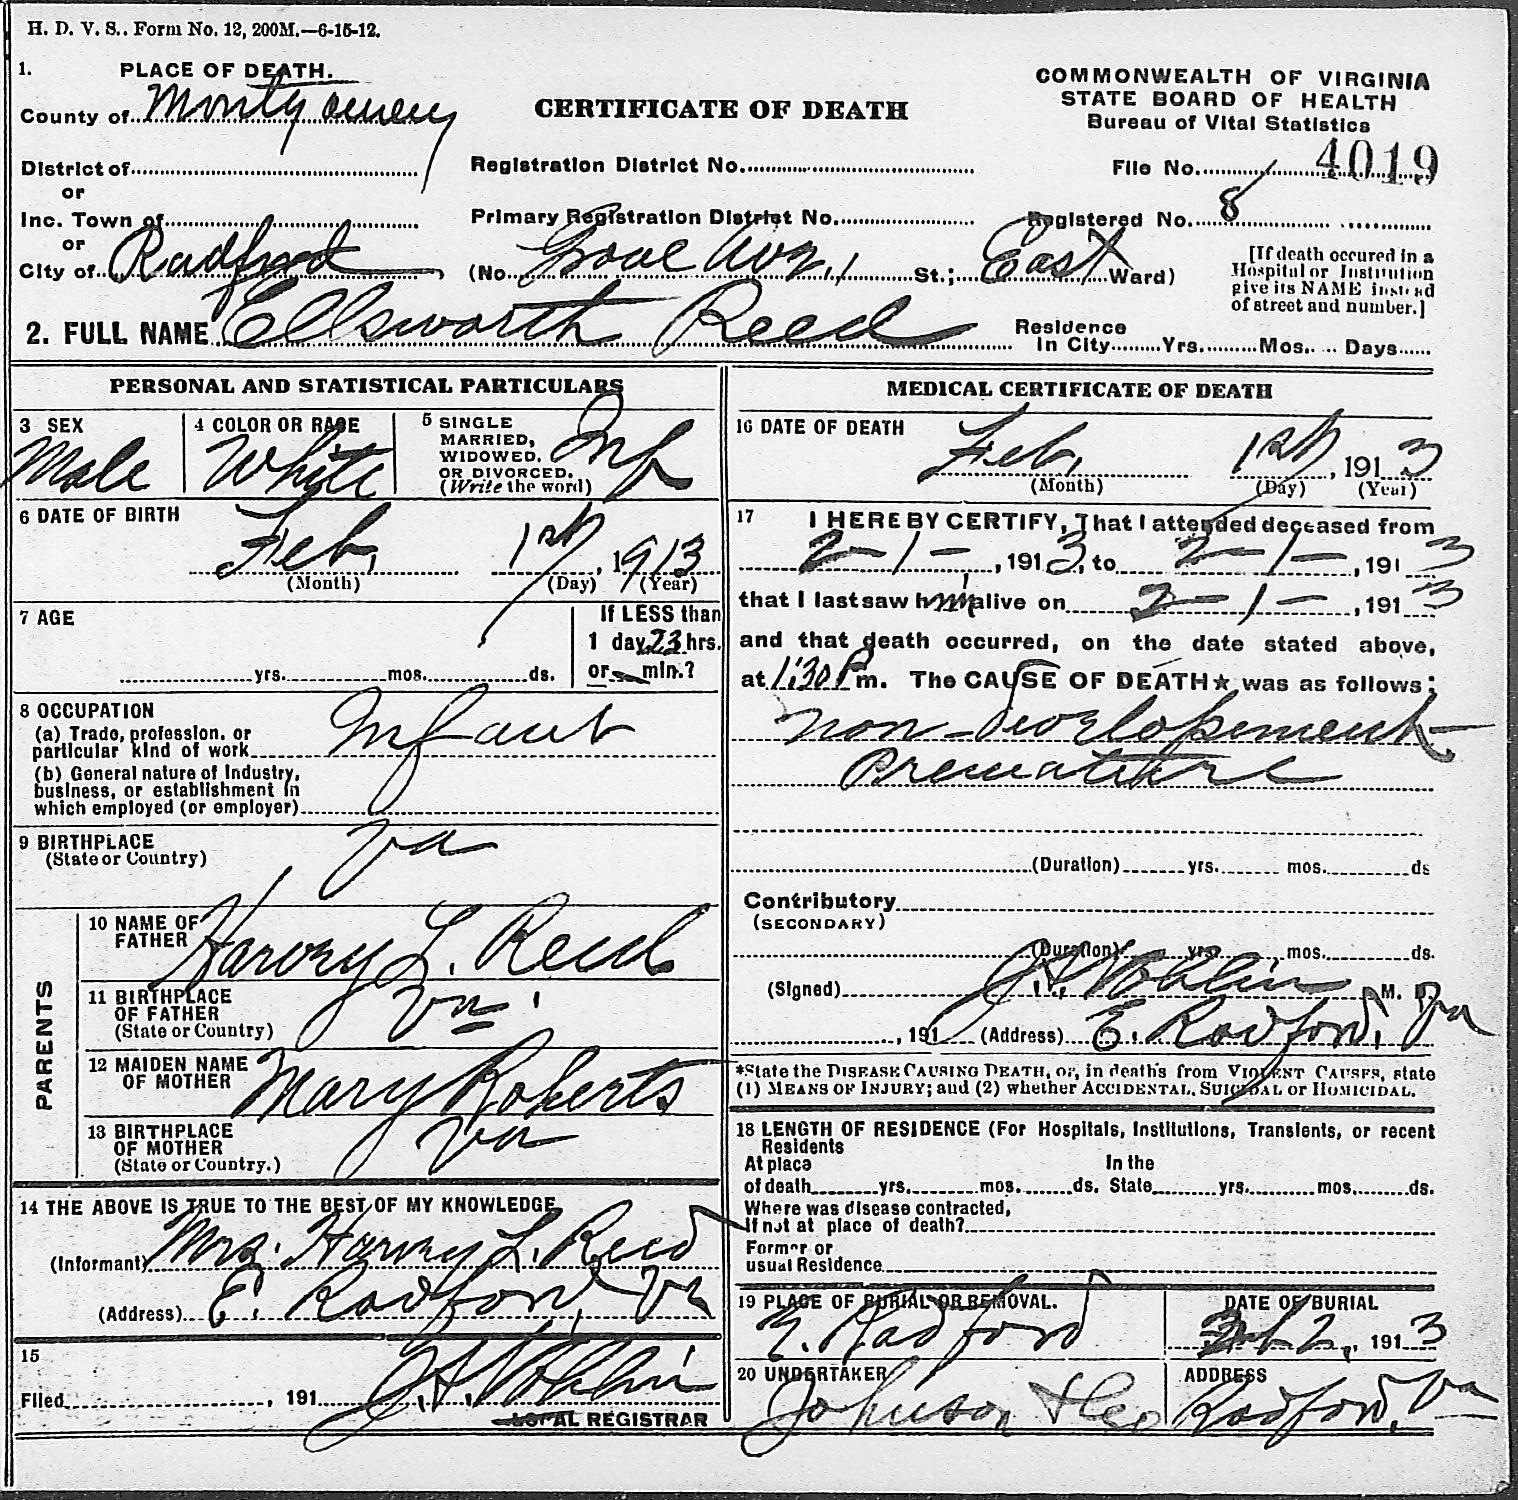 H. D. V. S.. Form No. 12, 200M.—6-15-12.
1. PLACE OF DEATH.
County of Montgomery
District of
or
Inc. Town of
or
City of Radford
CERTIFICATE OF DEATH
Registration District No.
Primary Registration District No.
(No. Grove Ave, St.; East Ward)
COMMONWEALTH OF VIRGINIA
STATE BOARD OF HEALTH
Bureau of Vital Statistics
File No. 4019
Registered No. 8
[If death occured in a
Hospital or Institution
give its NAME instead
of street and number.]
2. FULL NAME Ellsworth Reed
Residence
In City Yrs. Mos. Days
PERSONAL AND STATISTICAL PARTICULARS
3 SEX
Male
4 COLOR OR RACE
White
5 SINGLE
MARRIED,
WIDOWED.
OR DIVORCED.
(Write the word)
Inf
6 DATE OF BIRTH
Feb, 1st, 1913
(Month) (Day) (Year)
7 AGE
yrs. mos. ds.
If LESS than
1 day, 23 hrs.
or min.?
8 OCCUPATION
(a) Trade, profession, or
particular kind of work Infant
(b) General nature of Industry,
business, or establishment in
which employed (or employer)
9 BIRTHPLACE
(State or Country)
Va
PARENTS
10 NAME OF
FATHER Harvey L. Reed
11 BIRTHPLACE
OF FATHER
(State or Country)
Va.
12 MAIDEN NAME
OF MOTHER Mary Roberts
13 BIRTHPLACE
OF MOTHER
(State or Country.)
Va
14 THE ABOVE IS TRUE TO THE BEST OF MY KNOWLEDGE
(Informant) Mrs. Harvey L. Reed
(Address) E. Radford, Va
15
Filed , 191
LOCAL REGISTRAR
MEDICAL CERTIFICATE OF DEATH
16 DATE OF DEATH
Feb, 1st, 1913
(Month) (Day) (Year)
17 I HEREBY CERTIFY, That I attended deceased from
2-1-, 1913, to 2-1-, 1913
that I last saw him alive on 2-1-, 1913
and that death occurred, on the date stated above,
at 1:30 P m. The CAUSE OF DEATH★ was as follows:
non-developement-
Premature
(Duration) yrs. mos. ds
Contributory
(SECONDARY)
(Duration) yrs. mos. ds.
(Signed) M. D.
, 191 (Address) E. Radford, Va
*State the DISEASE CAUSING DEATH, or, in deaths from VIOLENT CAUSES, state
(1) MEANS OF INJURY; and (2) whether ACCIDENTAL, SUICIDAL or HOMICIDAL.
18 LENGTH OF RESIDENCE (For Hospitals, Institutions, Transients, or recent
Residents
At place
of death yrs. mos. ds.
In the
State yrs. mos. ds.
Where was disease contracted,
If not at place of death?
Former or
usual Residence
19 PLACE OF BURIAL OR REMOVAL.
Radford
DATE OF BURIAL
2, 1913
20 UNDERTAKER
Johnson & Co
ADDRESS
Radford, Va